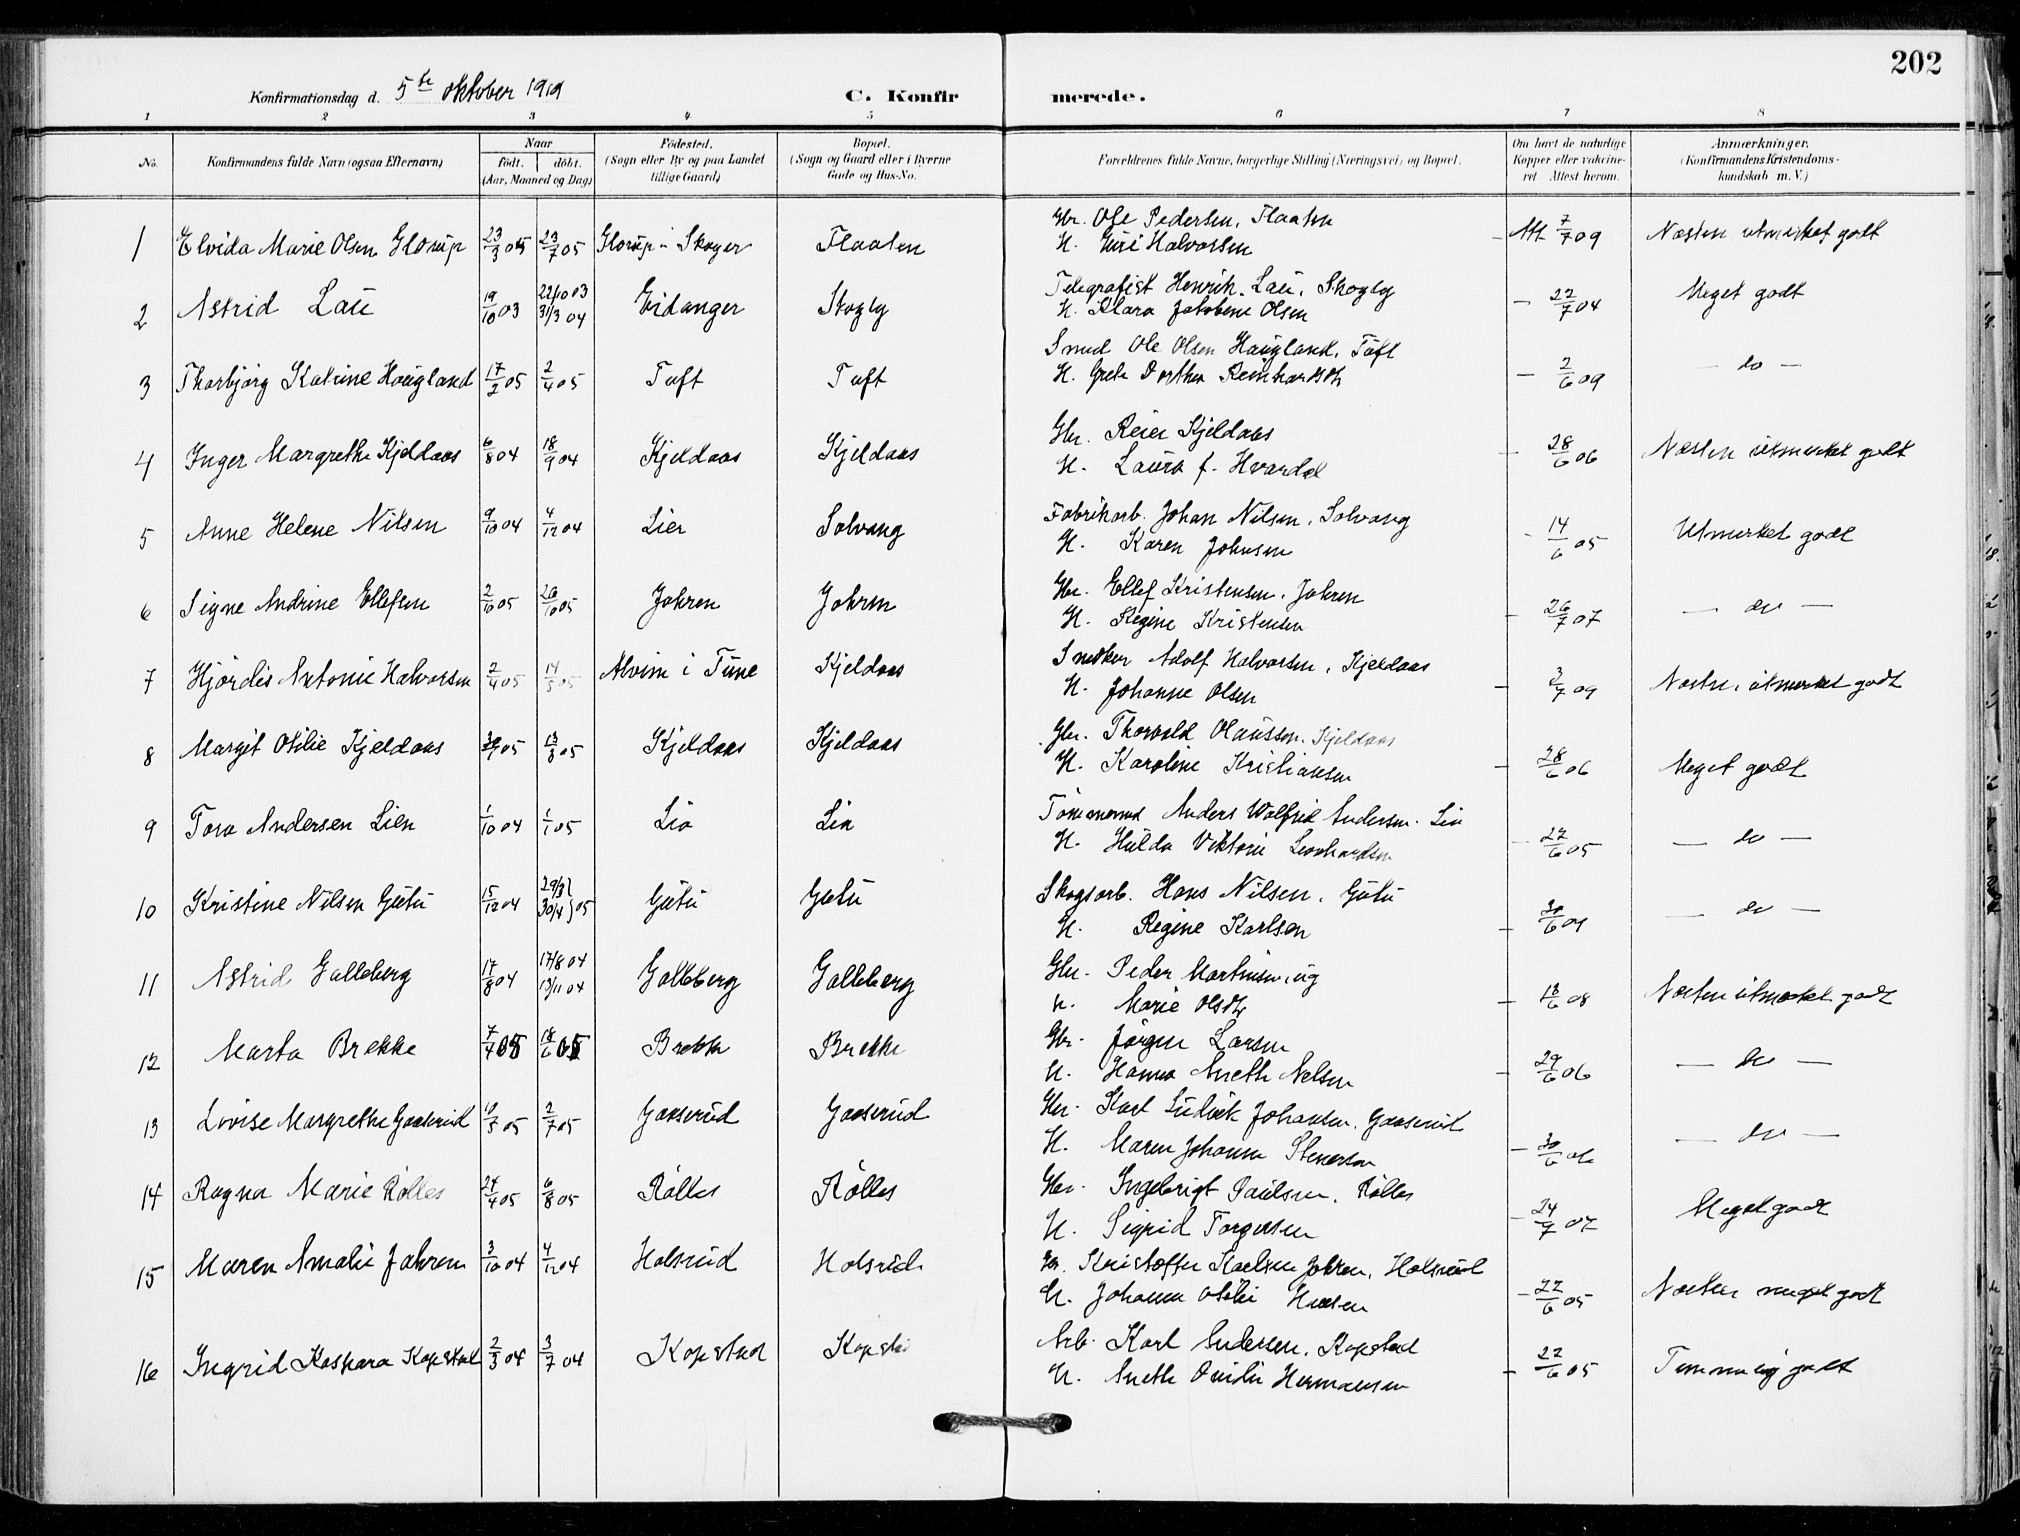 202
Konfirmationsdag d. 5te oktober 1919
C. Konfirmerede.
1 2 3 4 5 6 7 8
No. Konfirmandens fulde Navn (ogsaa Efternavn) Naar født. døbt. (Aar, Maaned og Dag) Födested. (Sogn eller By og paa Landet tillige Gaard) Bopæl. (Sogn og Gaard eller i Byerne Gade og Hus-No. Forældrenes fulde Navne, borgerlige Stilling (Næringsvei) og Bopæl. Om havt de naturlige Kopper eller vaccineret Attest herom. Anmærkninger. (Konfirmandens Kristendomskundskab m. V.)
1 Elvida Marie Olsen Glorup 23/3 05 23/7 05 Glorup i Skoger Flaaten Gbr. Ole Pedersen, Flaaten
H. Guri Halvorsen - Att 7/7 09 Næsten utmerket godt
2 Astrid Lau 19/10 03 22/10 03 31/3 04 Eidanger Skogly Telegrafist Henrik Lau, Skogly
H. Klara Jakobine Olsen - 22/7 04 Meget godt
3 Thorbjørg Katrine Haugland 17/2 05 2/4 05 Tuft Tuft Smed Ole Olsen Haugland, Tuft
H. Grete Dorthea Reinhardsdtr - 2/6 09 - do -
4 Inger Margrethe Kjeldaas 6/8 04 18/9 04 Kjeldaas Kjeldaas Gbr. Reier Kjeldaas
H. Laura f. Hvardal - 28/6 06 Næsten utmerket godt
5 Anne Helene Nilsen 9/10 04 4/12 04 Lier Solvang Fabrikarb. Johan Nilsen, Solvang
H. Karen Johnsen - 14/6 05 Utmerket godt
6 Signe Andrine Ellefsen 2/10 05 26/10 05 Jahren Jahren Gbr. Ellef Kristensen, Jahren
H. Regine Kristensen - 26/7 07 - do -
7 Hjørdis Antonie Halvorsen 2/4 05 14/5 05 Alvim i Tune Kjeldaas Snedker Adolf Halvorsen, Kjeldaas
H. Johanne Olsen - 3/7 09 Næsten utmerket godt
8 Margit Otilie Kjeldaas 05 13/3 05 Kjeldaas Kjeldaas Gbr. Thorvald Olausson, Kjeldaas
H. Karoline Kristiansen - 28/6 06 Meget godt
9 Tora Andersen Lien 1/10 04 1/1 05 Lia Lia Tømmermd Anders Wolfrid Andersen. Lia
H. Hulda Viktoria Leonhardsen - 22/6 05 - do -
10 Kristine Nilsen Gutu 15/12 04 29/3 30/4 } 05 Gutu Gutu Skogsarb. Hans Nilsen, Gutu
H. Regine Karlsen - 30/6 09 - do -
11 Astrid Galleberg 17/8 04 17/8 04 13/11 04 Galleberg Galleberg Gbr. Peder Martinsen, og
H. Marie Olsdtr - 18/6 08 Næsten utmerket godt
12 Marta Brekke 7/4 05 18/6 05 Brekke Brekke Gbr. Jørgen Larsen
H. Hanna Anethe Nelsen - 29/6 06 - do -
13 Lovise Margrethe Gaaserud 19/3 05 2/7 05 Gaaserud Gaaserud Gbr. Karl Ludvik Johansen, Gaaserud
H. Maren Johanne Stenersen - 30/6 06 - do -
14 Ragna Marie Rølles 24/4 05 6/8 05 Rølles Rølles Gbr. Ingebrigt Paulsen, Rølles
H. Sigrid Torgersen - 24/7 07 Meget godt
15 Maren Amalie Jahren 3/10 04 4/12 04 Holsrud Holsrud Gbr. Kristoffer Karlsen Jahren, Holsrud
H. Johanne Otilie Hansen - 22/6 05 Næsten meget godt
16 Ingrid Kaspara Kopstad 2/3 04 3/7 04 Kopstad Kopstad Arb. Karl Andersen, Kopstad
H. Anethe Hermansen - 22/6 05 Temmelig godt